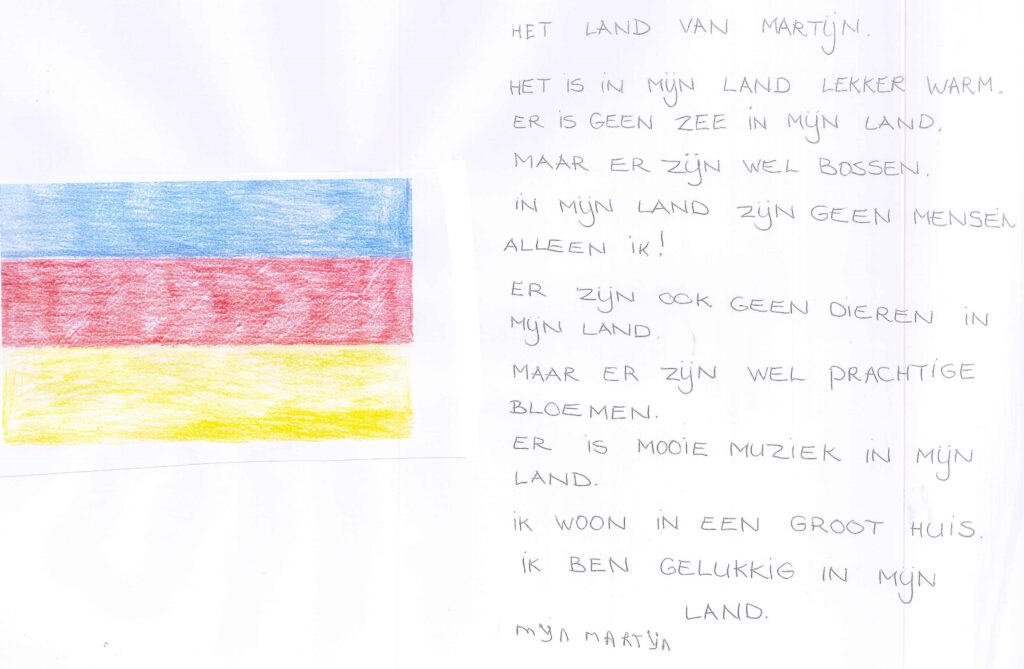 HET LAND VAN MARTIJN.
HET IS IN MIJN LAND LEKKER WARM.
ER IS GEEN ZEE IN MIJN LAND.
MAAR ER ZIJN WEL BOSSEN.
IN MIJN LAND ZIJN GEEN MENSEN
ALLEEN IK!
ER ZIJN OOK GEEN DIEREN IN
MIJN LAND.
MAAR ER ZIJN WEL PRACHTIGE
BLOEMEN.
ER IS MOOIE MUZIEK IN MIJN
LAND.
IK WOON IN EEN GROOT HUIS.
IK BEN GELUKKIG IN MIJN
LAND.
MIJN MARTIJN